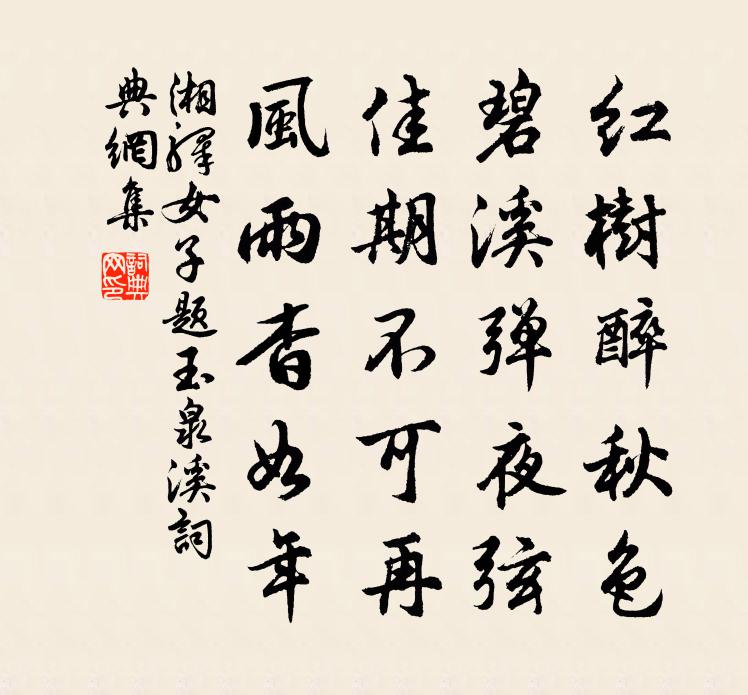 红樹醉秋色
碧溪弹夜弦
佳期不可再
風雨杳如年
湘驛女子題玉泉溪詞
典網集
詞典
网印